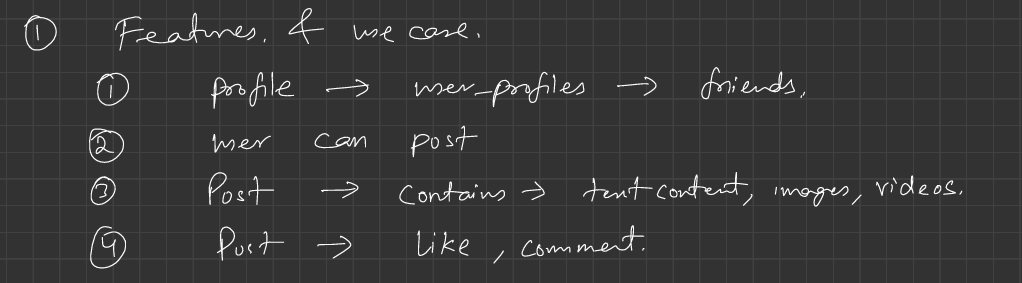 ① Features. & use case.
① profile → user_profiles → friends,
② user can post
③ Post → contains → text content, images, videos.
④ Post → Like, comment.